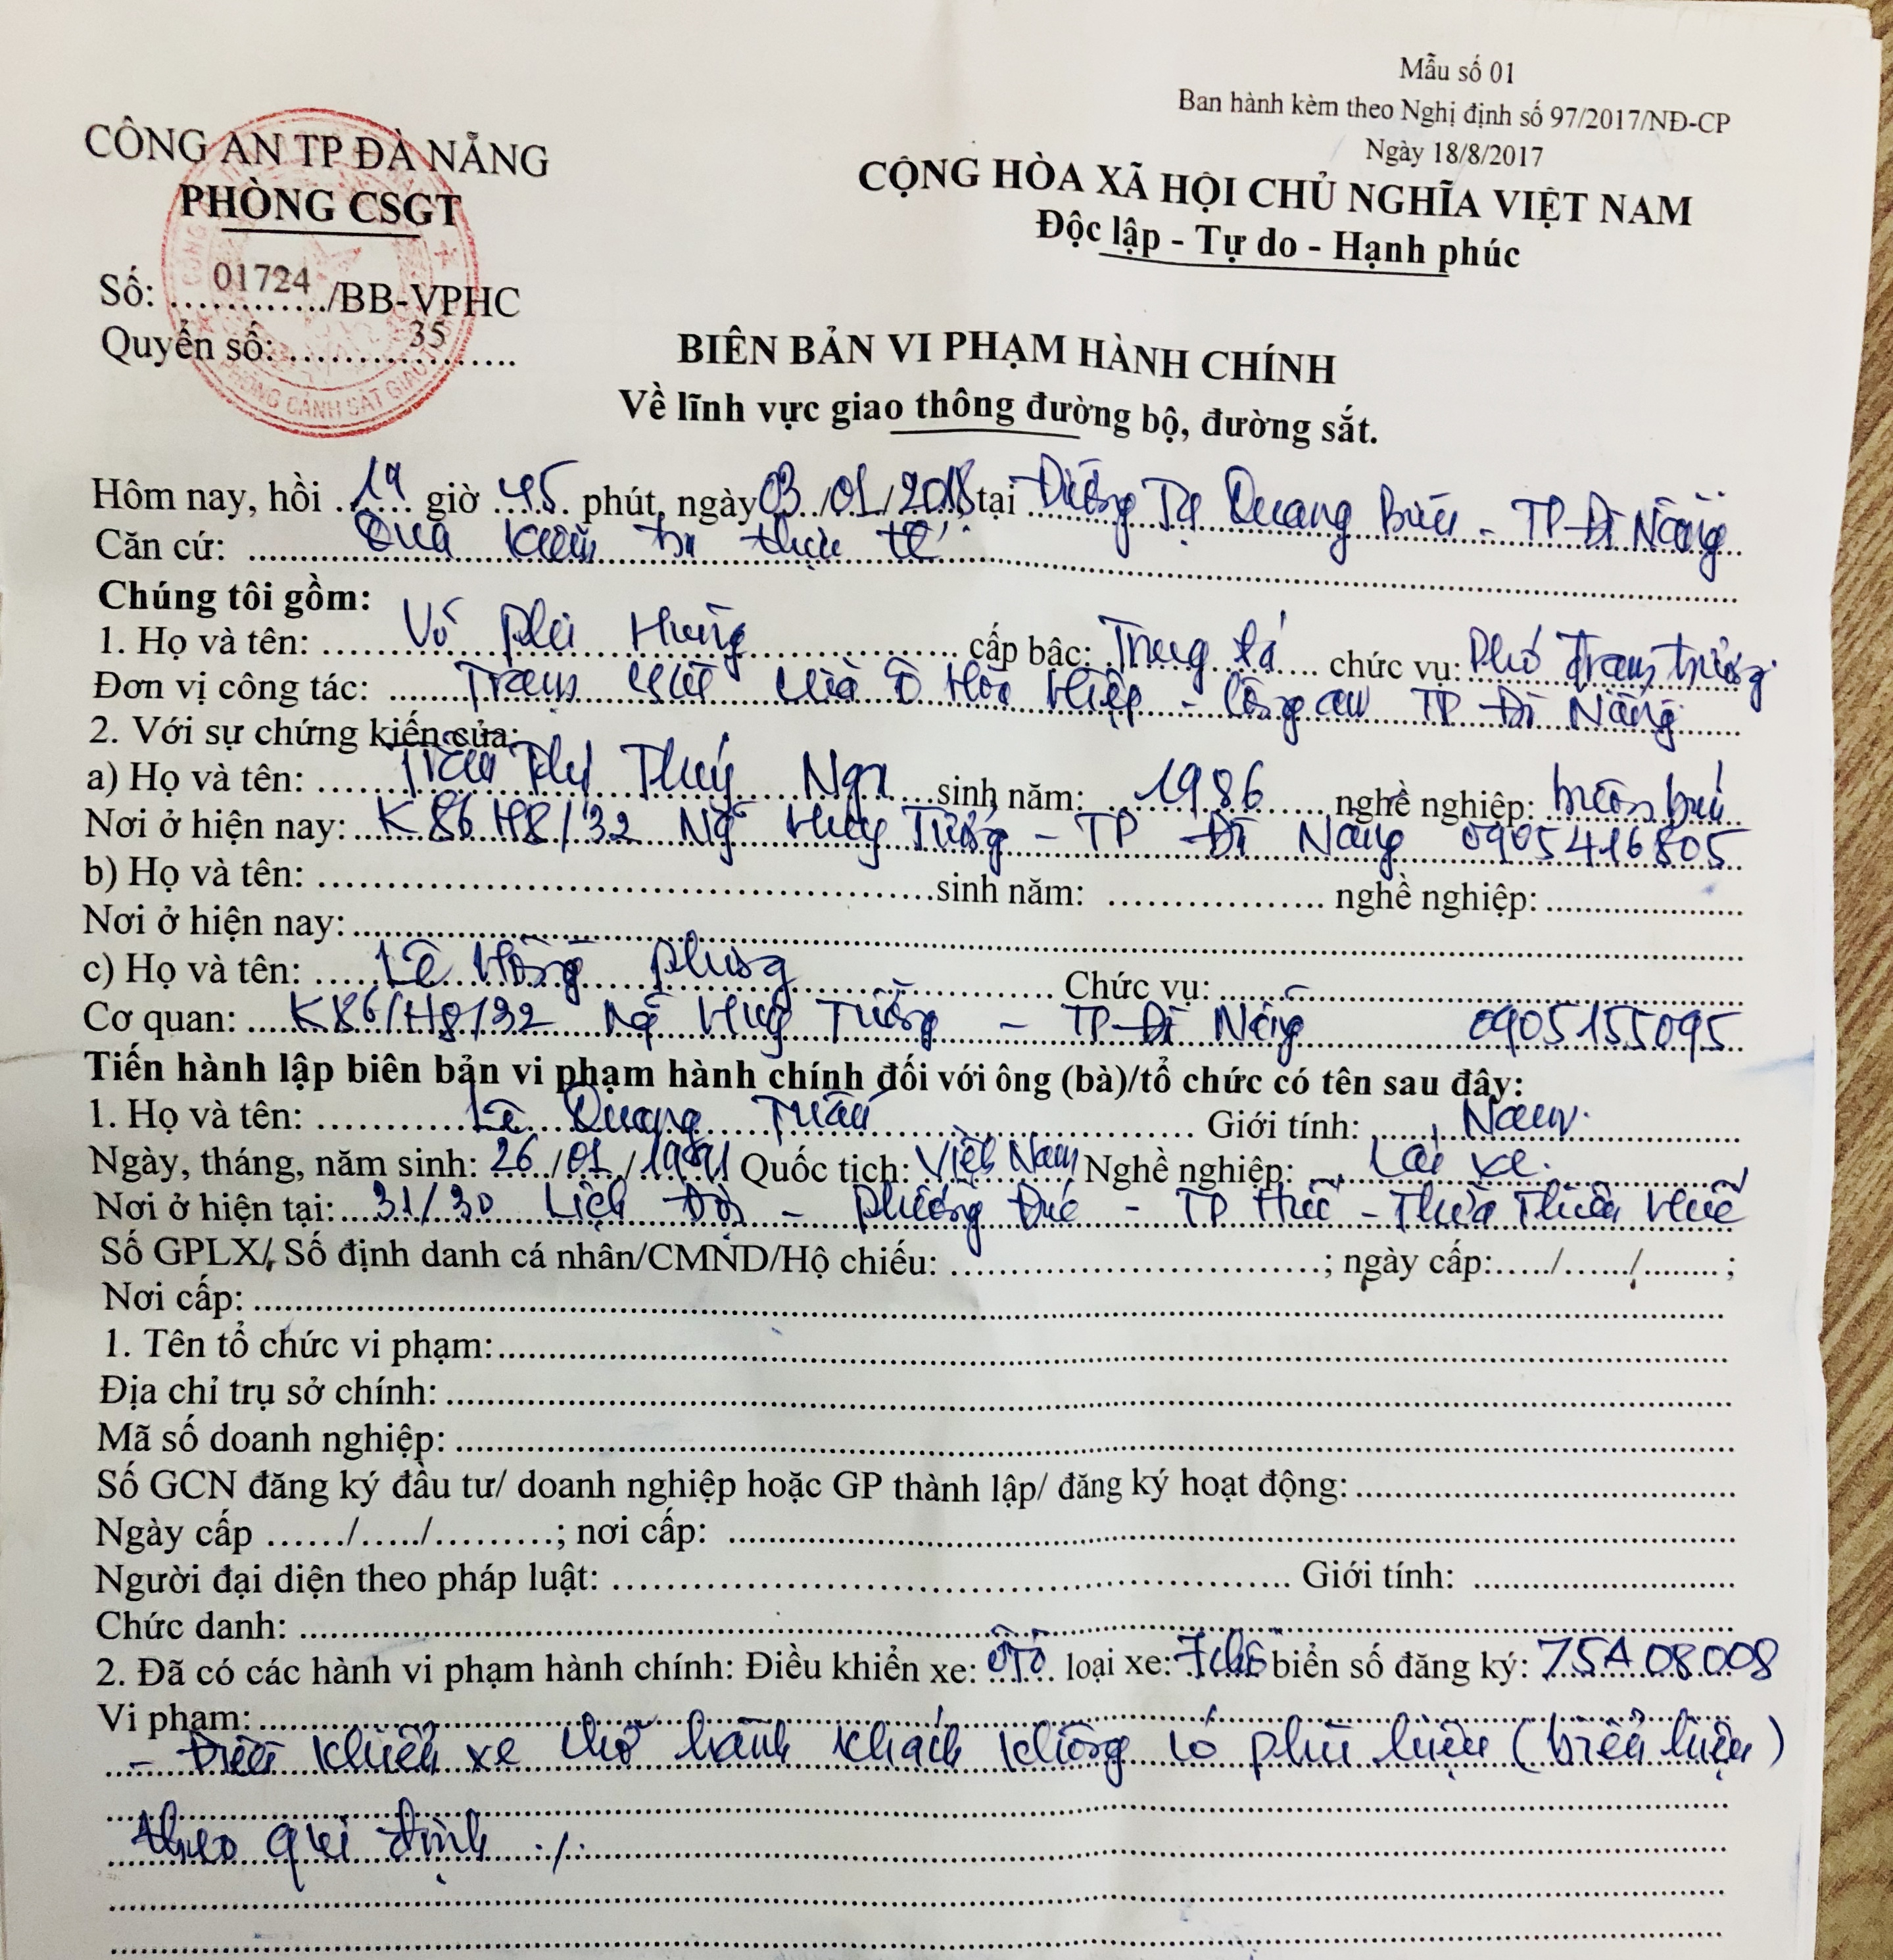 Mẫu số 01
Ban hành kèm theo Nghị định số 97/2017/NĐ-CP
Ngày 18/8/2017
CÔNG AN TP ĐÀ NẴNG
PHÒNG CSGT
CỘNG HÒA XÃ HỘI CHỦ NGHĨA VIỆT NAM
Độc lập - Tự do - Hạnh phúc
Số: 01724/BB-VPHC
Quyển số: 35
PHÒNG CẢNH SÁT GIAO
BIÊN BẢN VI PHẠM HÀNH CHÍNH
Về lĩnh vực giao thông đường bộ, đường sắt.
Hôm nay, hồi 19 giờ 45 phút, ngày 03/01/2018 tại Đường Tạ Quang Bửu - TP Đà Nẵng
Căn cứ: Qua kiểm tra thực tế
Chúng tôi gồm:
1. Họ và tên: Võ Phú Hưng cấp bậc: Trung tá chức vụ: Phó Trạm trưởng
Đơn vị công tác: Trạm CSGT cửa ô Hòa Hiệp - Công an TP Đà Nẵng
2. Với sự chứng kiến của:
a) Họ và tên: Trần Thị Thuý Nga sinh năm: 1986 nghề nghiệp: buôn bán
Nơi ở hiện nay: K86 H8/32 Ng Huy Tưởng - TP Đà Nẵng 0905416805
b) Họ và tên: sinh năm: nghề nghiệp:
Nơi ở hiện nay:
c) Họ và tên: Lê Hồng Phương Chức vụ:
Cơ quan: K86/H8/32 Ng Huy Tưởng - TP Đà Nẵng 0905155095
Tiến hành lập biên bản vi phạm hành chính đối với ông (bà)/tổ chức có tên sau đây:
1. Họ và tên: Lê Quang Tuấn Giới tính: Nam
Ngày, tháng, năm sinh: 26/01/ Quốc tịch: Việt Nam Nghề nghiệp: Lái xe.
Nơi ở hiện tại: 31/30 Lịch Đợi - Phường Đúc - TP Huế - Thừa Thiên Huế
Số GPLX/ Số định danh cá nhân/CMND/Hộ chiếu: ; ngày cấp: / / ;
Nơi cấp:
1. Tên tổ chức vi phạm:
Địa chỉ trụ sở chính:
Mã số doanh nghiệp:
Số GCN đăng ký đầu tư/ doanh nghiệp hoặc GP thành lập/ đăng ký hoạt động:
Ngày cấp / / ; nơi cấp:
Người đại diện theo pháp luật: Giới tính:
Chức danh:
2. Đã có các hành vi phạm hành chính: Điều khiển xe: ôTô loại xe: 7chỗ biển số đăng ký: 75A 08008
Vi phạm:
- Điều khiển xe chở hành khách không có phù hiệu (biển hiệu)
theo qui định ./.